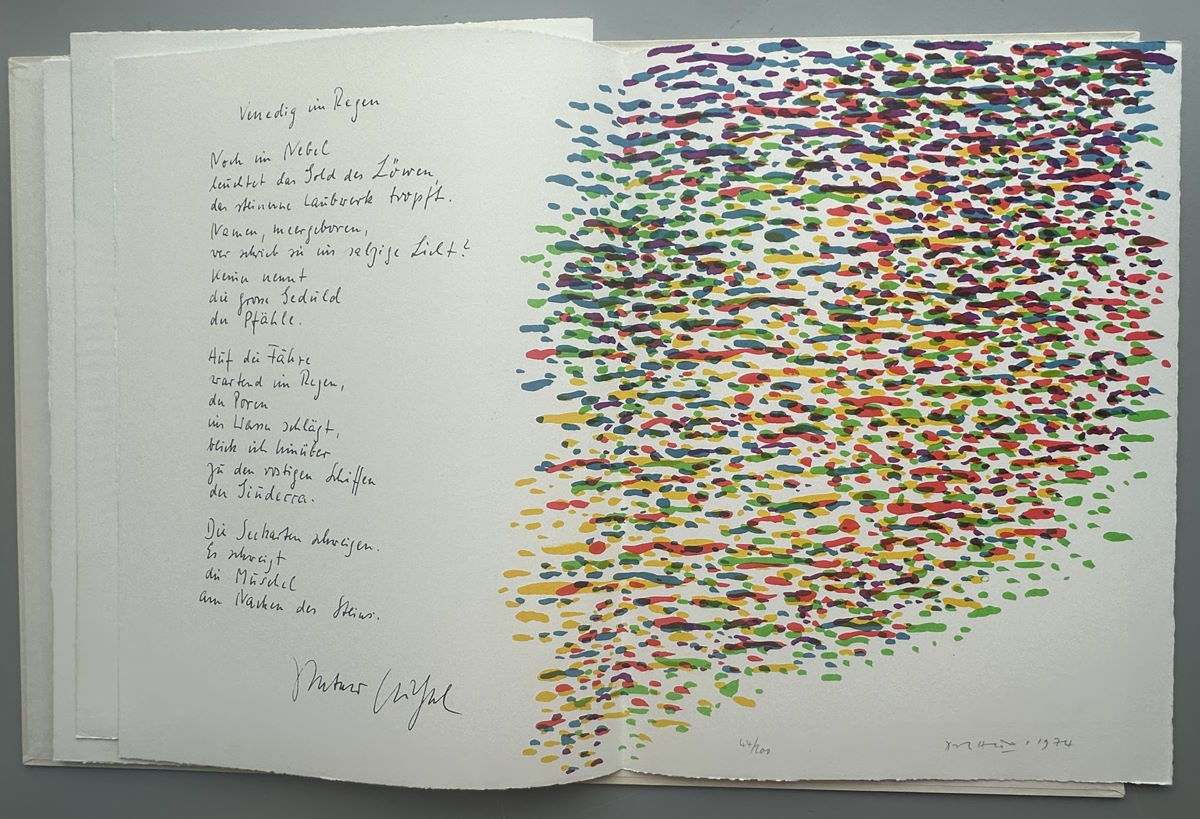 Venedig im Regen
Noch im Nebel
leuchtet das Gold des Löwen,
das steinerne Laubwerk tropft.
Namen, meergeboren,
wer schrieb sie ins salzige Licht?
Keiner nennt
die grosse Geduld
der Pfähle.
Auf die Fähre
wartend im Regen,
der Poren
ins Wasser schlägt,
blick ich hinüber
zu den rostigen Schiffen
der Giudecca.
Die Seekarten schweigen.
Es schweigt
die Muschel
am Nacken des Steins.
44/200
1974